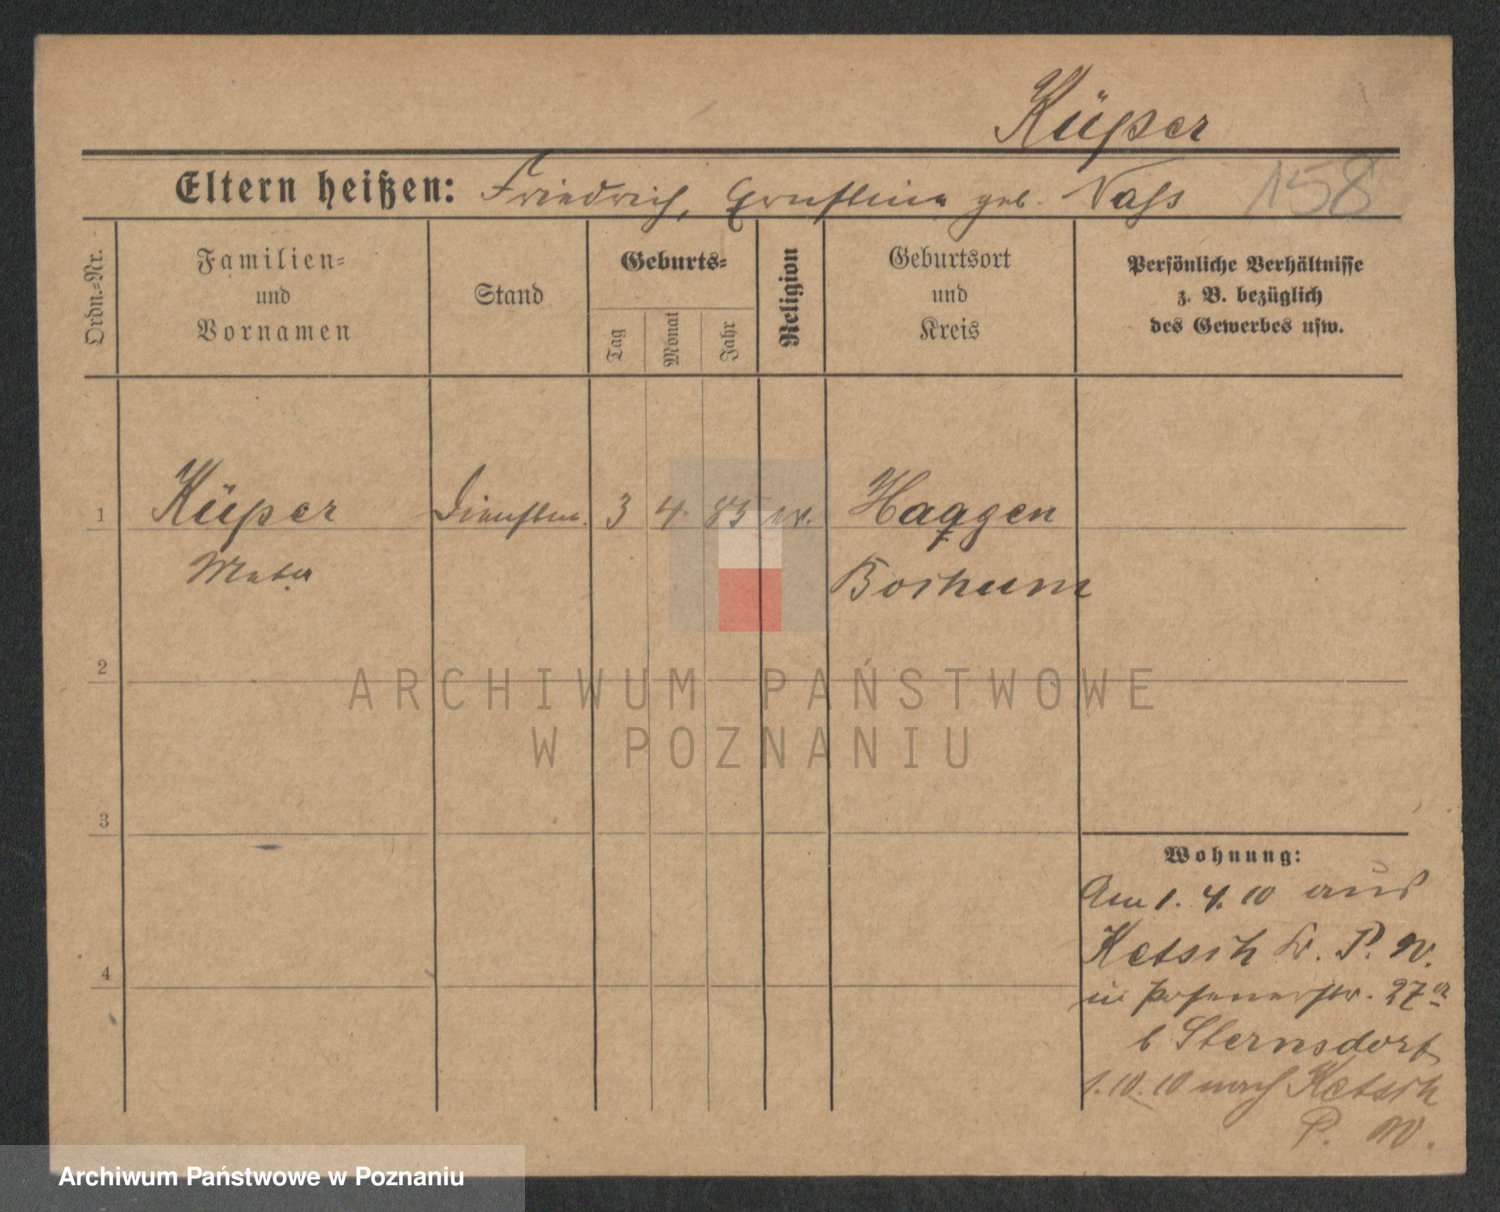 Küper
Eltern heißen: Friedrich, Ernstine geb. Nass 158
Ordn.-Nr.
Familien-
und
Vornamen
Stand
Geburts-
Tag
Monat
Jahr
Religion
Geburtsort
und
Kreis
Persönliche Verhältnisse
z. B. bezüglich
des Gewerbes usw.
1 Küper Dienstm. 3 4. 85 ev. Haggen
Meta Bochum
2
ARCHIWUM PAŃSTWOWE
W POZNANIU
3
Wohnung:
Am 1. 4. 10 aus
Ketsch Kr. P. W.
4
in Posenerstr. 27 a
b Sternsdorf
1.10.10 nach Ketsch
P. W.
Archiwum Państwowe w Poznaniu